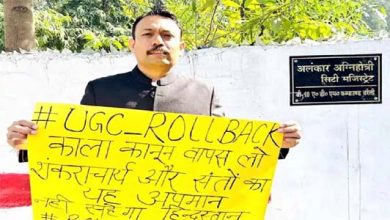 # UGC_ROLLBACK
काला कानून वापस लो
शंकराचार्य और संतों का
यह अपमान
नहीं सहेगा हिन्दुस्तान
अलंकार अग्निहोत्री
सिटी मजिस्ट्रेट